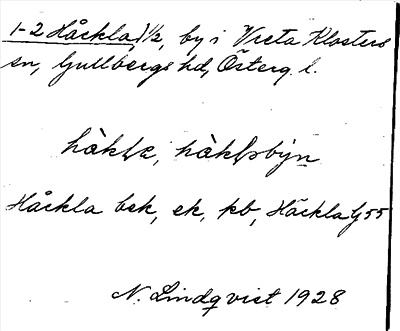 1-2 Håckla, 1/2, by i Vreta Klosters
sn, Gullbergs hd, Österg. l.
hàkla, hàklsbýn
Håckla bek, ek, kb, Häckla G 55
N. Lindqvist 1928